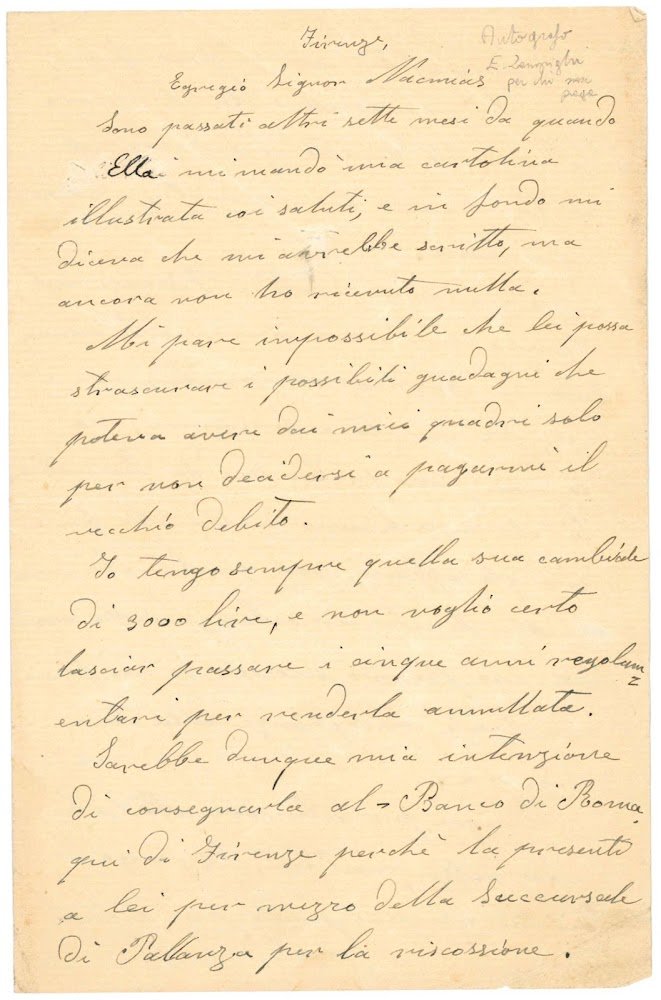 Firenze,
Autografo
E. Zampighi
per chi non
paga
Egregio Signor Nacmias
Sono passati altri sette mesi da quando
Ella mi mandò una cartolina
illustrata coi saluti, e in fondo mi
diceva che mi avrebbe scritto, ma
ancora non ho ricevuto nulla.
Mi pare impossibile che lei possa
strascurare i possibili guadagni che
poteva avere dai miei quadri solo
per non decidersi a pagarmi il
vecchio debito.
Io tengo sempre quella sua cambiale
di 3000 lire, e non voglio certo
lasciar passare i cinque anni regolam=
entari per renderla annullata.
Sarebbe dunque mia intenzione
di consegnarla al= Banco di Roma,
qui di Firenze perchè la presenti
a lei per mezzo della Succursale
di Pallanza per la riscossione.